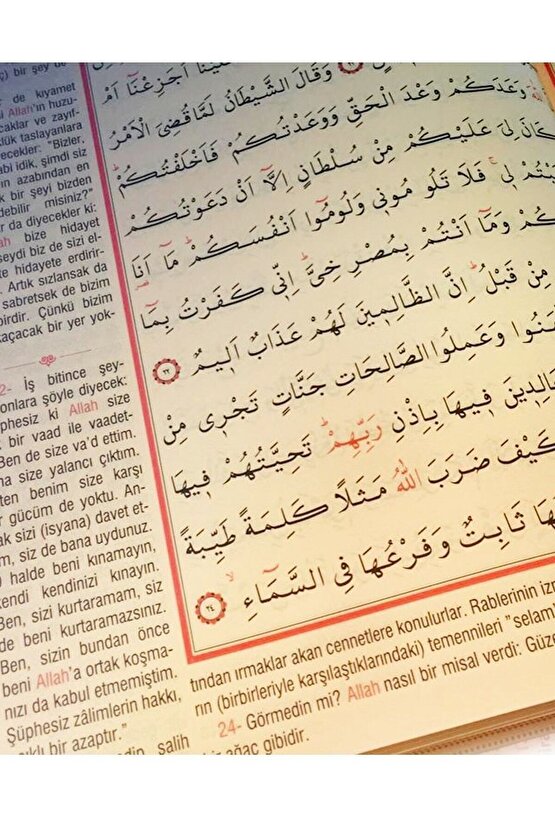 عَلَيْنَٓا اَجَزِعْنَٓا اَمْ
وَقَالَ الشَّيْطَانُ لَمَّا قُضِيَ الْاَمْرُ
وَعَدَكُمْ وَعْدَ الْحَقِّ وَوَعَدْتُكُمْ فَاَخْلَفْتُكُمْ
كَانَ لِيَ عَلَيْكُمْ مِنْ سُلْطَانٍ اِلَّٓا اَنْ دَعَوْتُكُمْ
فَلَا تَلُومُونِي وَلُومُٓوا اَنْفُسَكُمْ مَٓا اَنَا۬
وَمَٓا اَنْتُمْ بِمُصْرِخِيَّ اِنِّي كَفَرْتُ بِمَٓا
مِنْ قَبْلُ اِنَّ الظَّالِمِينَ لَهُمْ عَذَابٌ اَلِيمٌ ٢٢
وَعَمِلُوا الصَّالِحَاتِ جَنَّاتٍ تَجْرِي مِنْ
فِيهَا بِاِذْنِ رَبِّهِمْ تَحِيَّتُهُمْ فِيهَا
كَيْفَ ضَرَبَ اللّٰهُ مَثَلًا كَلِمَةً طَيِّبَةً
ثَابِتٌ وَفَرْعُهَا فِي السَّمَٓاءِ ٢٤
bir şey de
de kıyamet
Allah'ın huzu-
caklar ve zayıf-
lük taslayanlara
ecekler: "Bizler,
abi idik, şimdi siz
n azabından en
k bir şeyi bizden
debilir misiniz?"
r da diyecekler ki:
bize hidayet
seydi biz de sizi el-
te hidayete erdirir-
. Artık sızlansak da
sabretsek de bizim
birdir. Çünkü bizim
kaçacak bir yer yok-
2- İş bitince şey-
onlara şöyle diyecek:
phesiz ki Allah size
k bir vaad ile vaadet-
Ben de size va'd ettim.
na size yalancı çıktım.
ten benim size karşı
r gücüm de yoktu. An-
ak sizi (isyana) davet et-
m, siz de bana uydunuz.
) halde beni kınamayın,
kendi kendinizi kınayın.
Ben, sizi kurtaramam, siz
de beni kurtaramazsınız.
Ben, sizin bundan önce
beni Allah'a ortak koşma-
nızı da kabul etmemiştim.
Şüphesiz zâlimlerin hakkı,
bir azaptır."
salih
tından ırmaklar akan cennetlere konulurlar. Rablerinin iz
rın (birbirleriyle karşılaştıklarındaki) temennileri "selam
24- Görmedin mi? Allah nasıl bir misal verdi: Güze
ağaç gibidir.